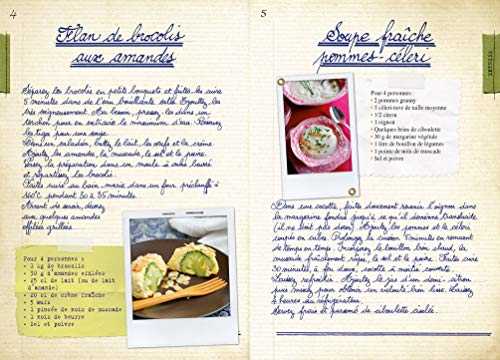 4
Flan de brocolis
aux amandes
Séparez les brocolis en petits bouquets et faites-les cuire
5 minutes dans de l'eau bouillante salée. Égouttez-les
très soigneusement. Au besoin, pressez-les dans un
torchon pour en extraire le maximum d'eau. Réservez
les tiges pour une soupe.
Dans un saladier, battez le lait, les œufs et la crème.
Ajoutez les amandes, la muscade, le sel et le poivre.
Versez la préparation dans un moule à cake beurré
et répartissez les brocolis.
Faites cuire au bain-marie dans un four préchauffé à
160°C pendant 30 à 35 minutes.
Avant de servir, décorez
avec quelques amandes
effilées grillées
Pour 4 personnes :
• 1 kg de brocolis
• 50 g d'amandes effilées
• 25 cl de lait (ou de lait
d'amande)
• 20 cl de crème fraîche
• 5 œufs
• 1 pincée de noix de muscade
• 1 noix de beurre
• Sel et poivre
5
Soupe fraîche
pommes-céleri
Pour 4 personnes :
• 2 pommes granny
• 1 céleri-rave de taille moyenne
• 1/2 citron
• 1 oignon
• Quelques brins de ciboulette
• 30 g de margarine végétale
• 1 litre de bouillon de légumes
• 1 pointe de noix de muscade
• Sel et poivre
Dans une cocotte, faites doucement revenir l'oignon dans
la margarine fondue jusqu'à ce qu'il devienne translucide
(il ne doit pas dorer). Ajoutez les pommes et le céleri
coupés en cubes. Prolongez la cuisson 5 minutes en remuant
de temps en temps. Incorporez le bouillon bien chaud, la
muscade fraîchement râpée, le sel et le poivre. Faites cuire
30 minutes, à feu doux, cocotte à moitié couverte.
Laissez refroidir. Ajoutez le jus d'un demi-citron
puis mixez pour obtenir un velouté bien lisse. Laissez
4 heures au réfrigérateur.
Servez frais et parsemé de ciboulette ciselée.